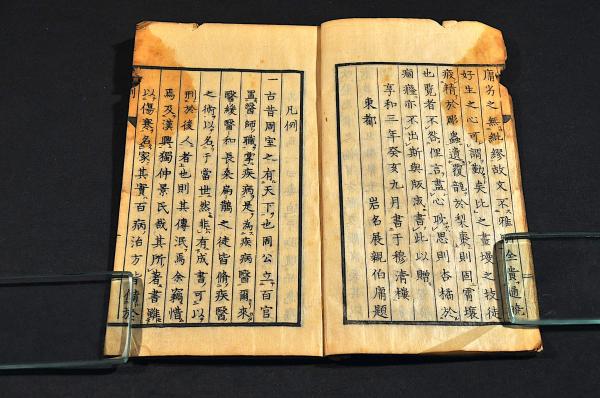 庸劣之無紕繆故文不雅
好生之心可謂勤矣比之畫墁之技徒
疲精於彫蟲遺覆瓿於梨棗則固霄壤
也覽者不咎俚言盡心耽思則古橘於
痼癊亦不出斯與版成書此以贈
享和三年癸亥九月書于穆清樓
東都 岩名展親伯庸題
凡例
一古昔周室之有天下也周公立百官
置醫師職掌疾病是為疾病醫爾來
醫緩醫和長桑扁鵲之徒皆脩疾醫
之術以名于當世然非有成書可以
刑於後人者也則其傳泯焉余竊惜
焉及漢興獨仲景氏哉其所著書雖
以傷寒為家其實百病治方皆備於